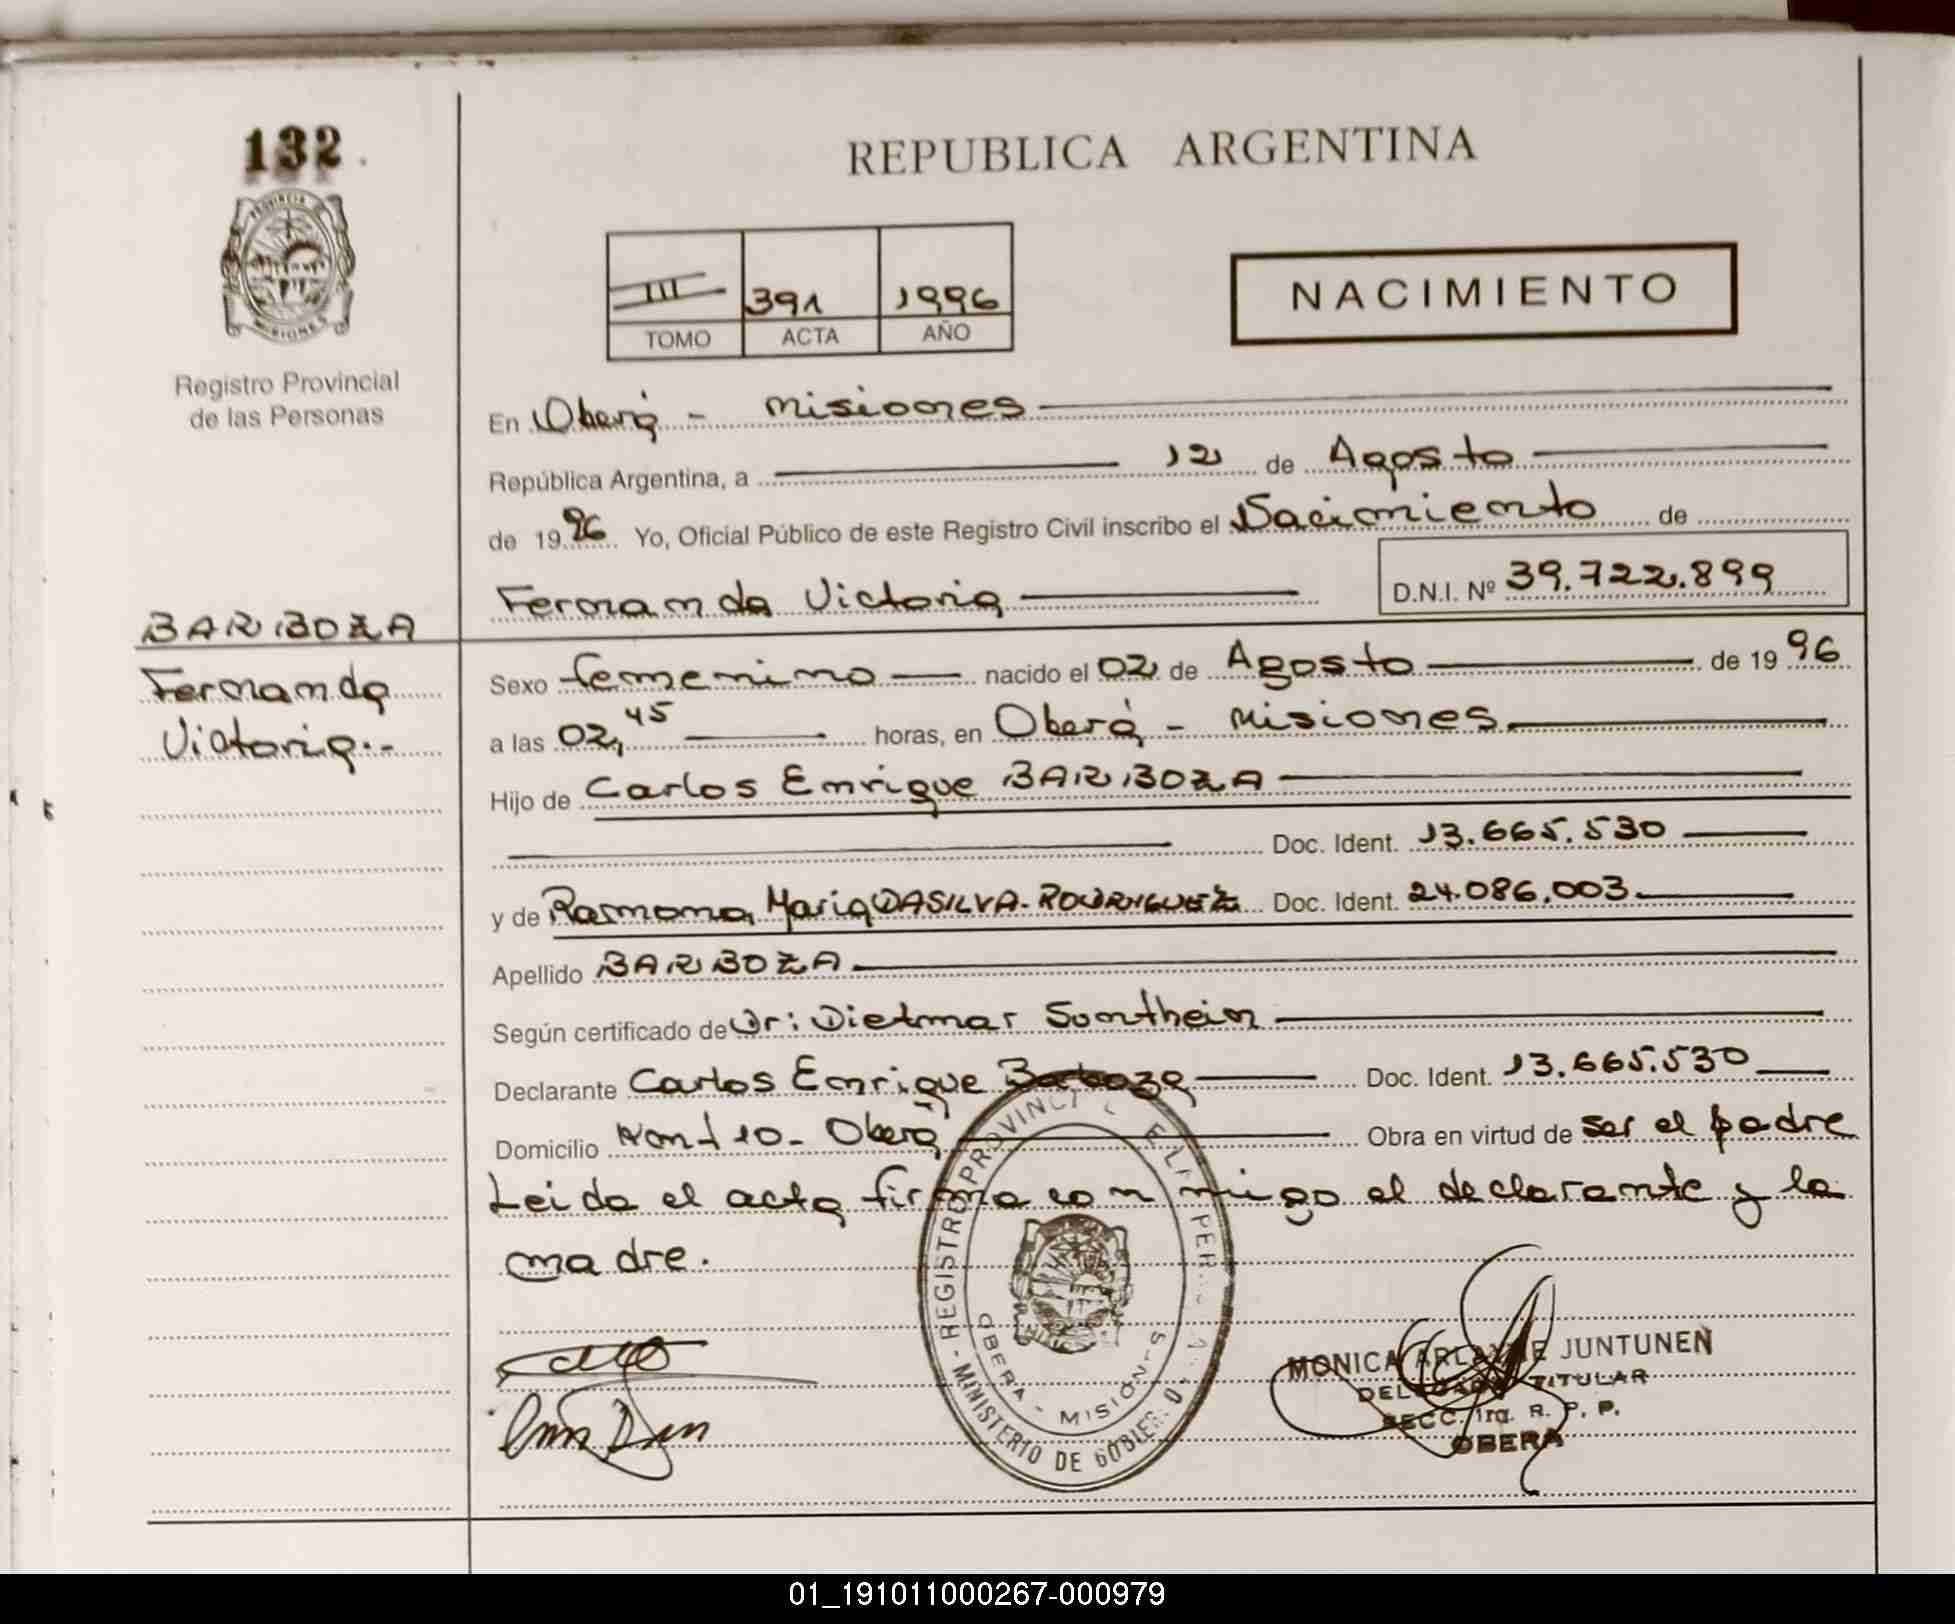 132
PROVINCIA
MISIONES
Registro Provincial
de las Personas
REPUBLICA ARGENTINA
III 391 1996
TOMO ACTA AÑO
NACIMIENTO
En Oberá - Misiones
República Argentina, a 12 de Agosto
de 1996 Yo, Oficial Público de este Registro Civil inscribo el Nacimiento de
Fernanda Victoria D.N.I. Nº 39.722.899
BARBOZA
Fernanda
Victoria.-
Sexo femenino nacido el 02 de Agosto de 1996
a las 02,45 horas, en Oberá - Misiones
Hijo de Carlos Enrique BARBOZA
Doc. Ident. 13.665.530
y de Ramona Maria DASILVA-RODRIGUEZ Doc. Ident. 24.086.003
Apellido BARBOZA
Según certificado de Dr: Dietmar Sontheim
Declarante Carlos Enrique Barboza Doc. Ident. 13.665.530
Domicilio Oberá Obra en virtud de ser el padre
Leida el acta firma con migo el declarante y la
madre.
- REGISTRO PROVINCI
MINISTERIO DE GOBIER
OBERA - MISIONES
MONICA ARLAYNE JUNTUNEN
DELEGADO TITULAR
SECC. 1ra. R. P. P.
OBERA
01_191011000267-000979